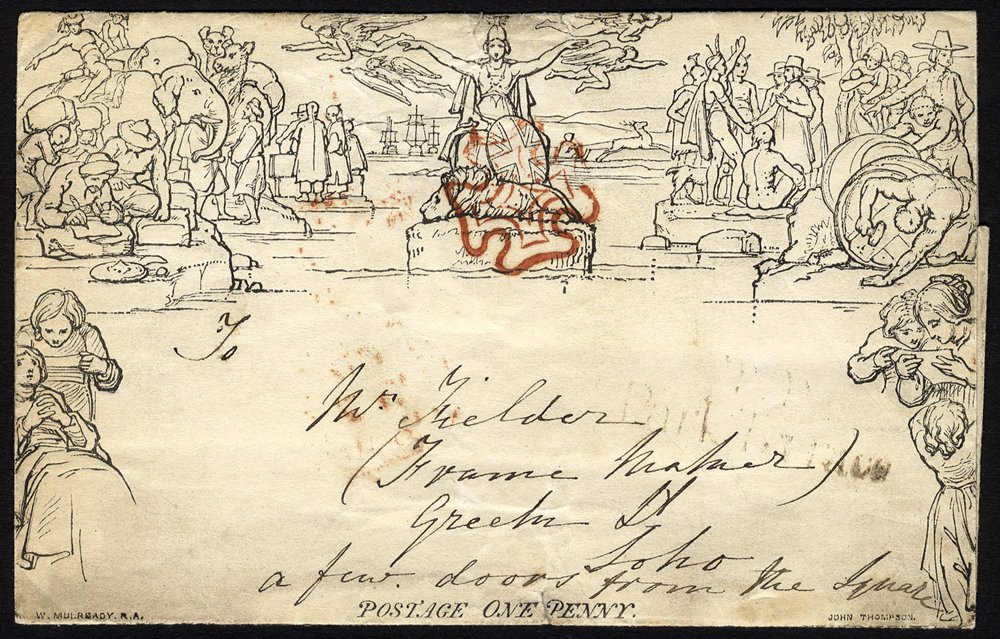 To
Mr. Fielder
(Frame Maker)
Greek St
Soho
a few doors from the Square
POSTAGE ONE PENNY.
W. MULREADY. R.A.
JOHN THOMPSON.